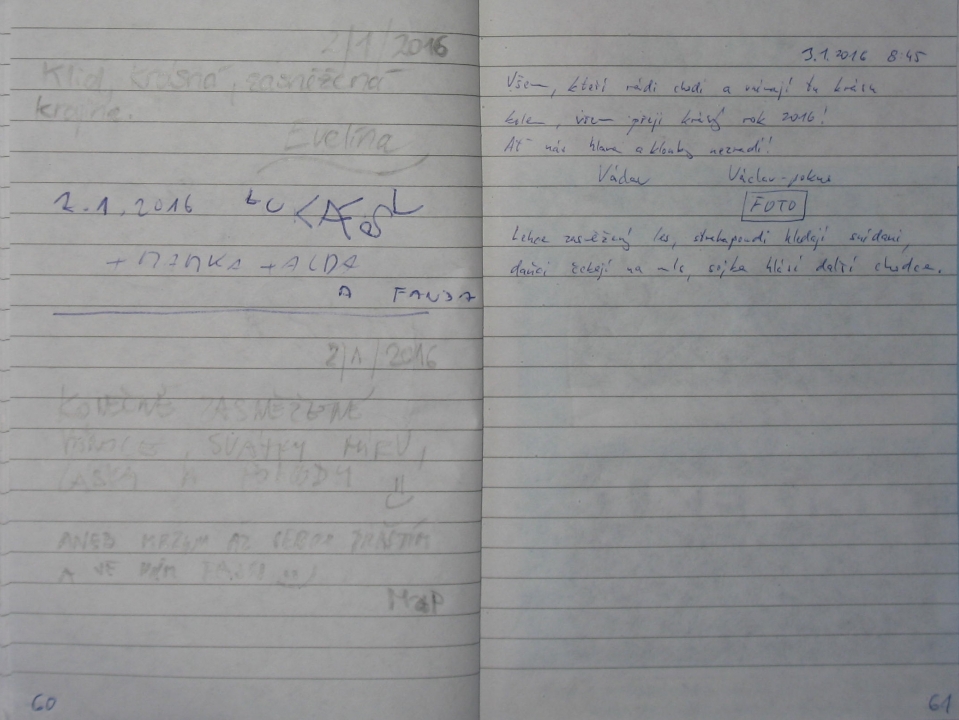 2/1/2016
Klid, krásná, zasněžená
krajina.
Evelína
2.1.2016
+ MAMKA + ALDA
A FANDA
2/1/2016
KONEČNĚ ZASNĚŽENÉ
VÁNOCE, SVÁTKY MÍRU,
LÁSKY A POHODY
ANEB MRZNU AŽ
A
60
3.1.2016 8:45
Všem, kteří rádi chodí a vnímají tu krásu
kolem, všem přeji krásný rok 2016!
Ať nás hlava a klouby nezradí!
Václav Václav-pokus
FOTO
Lehce zasněžený les, strakapoudi hledají snídani,
daňci čekají na mls, sojka hlásí další chodce.
61